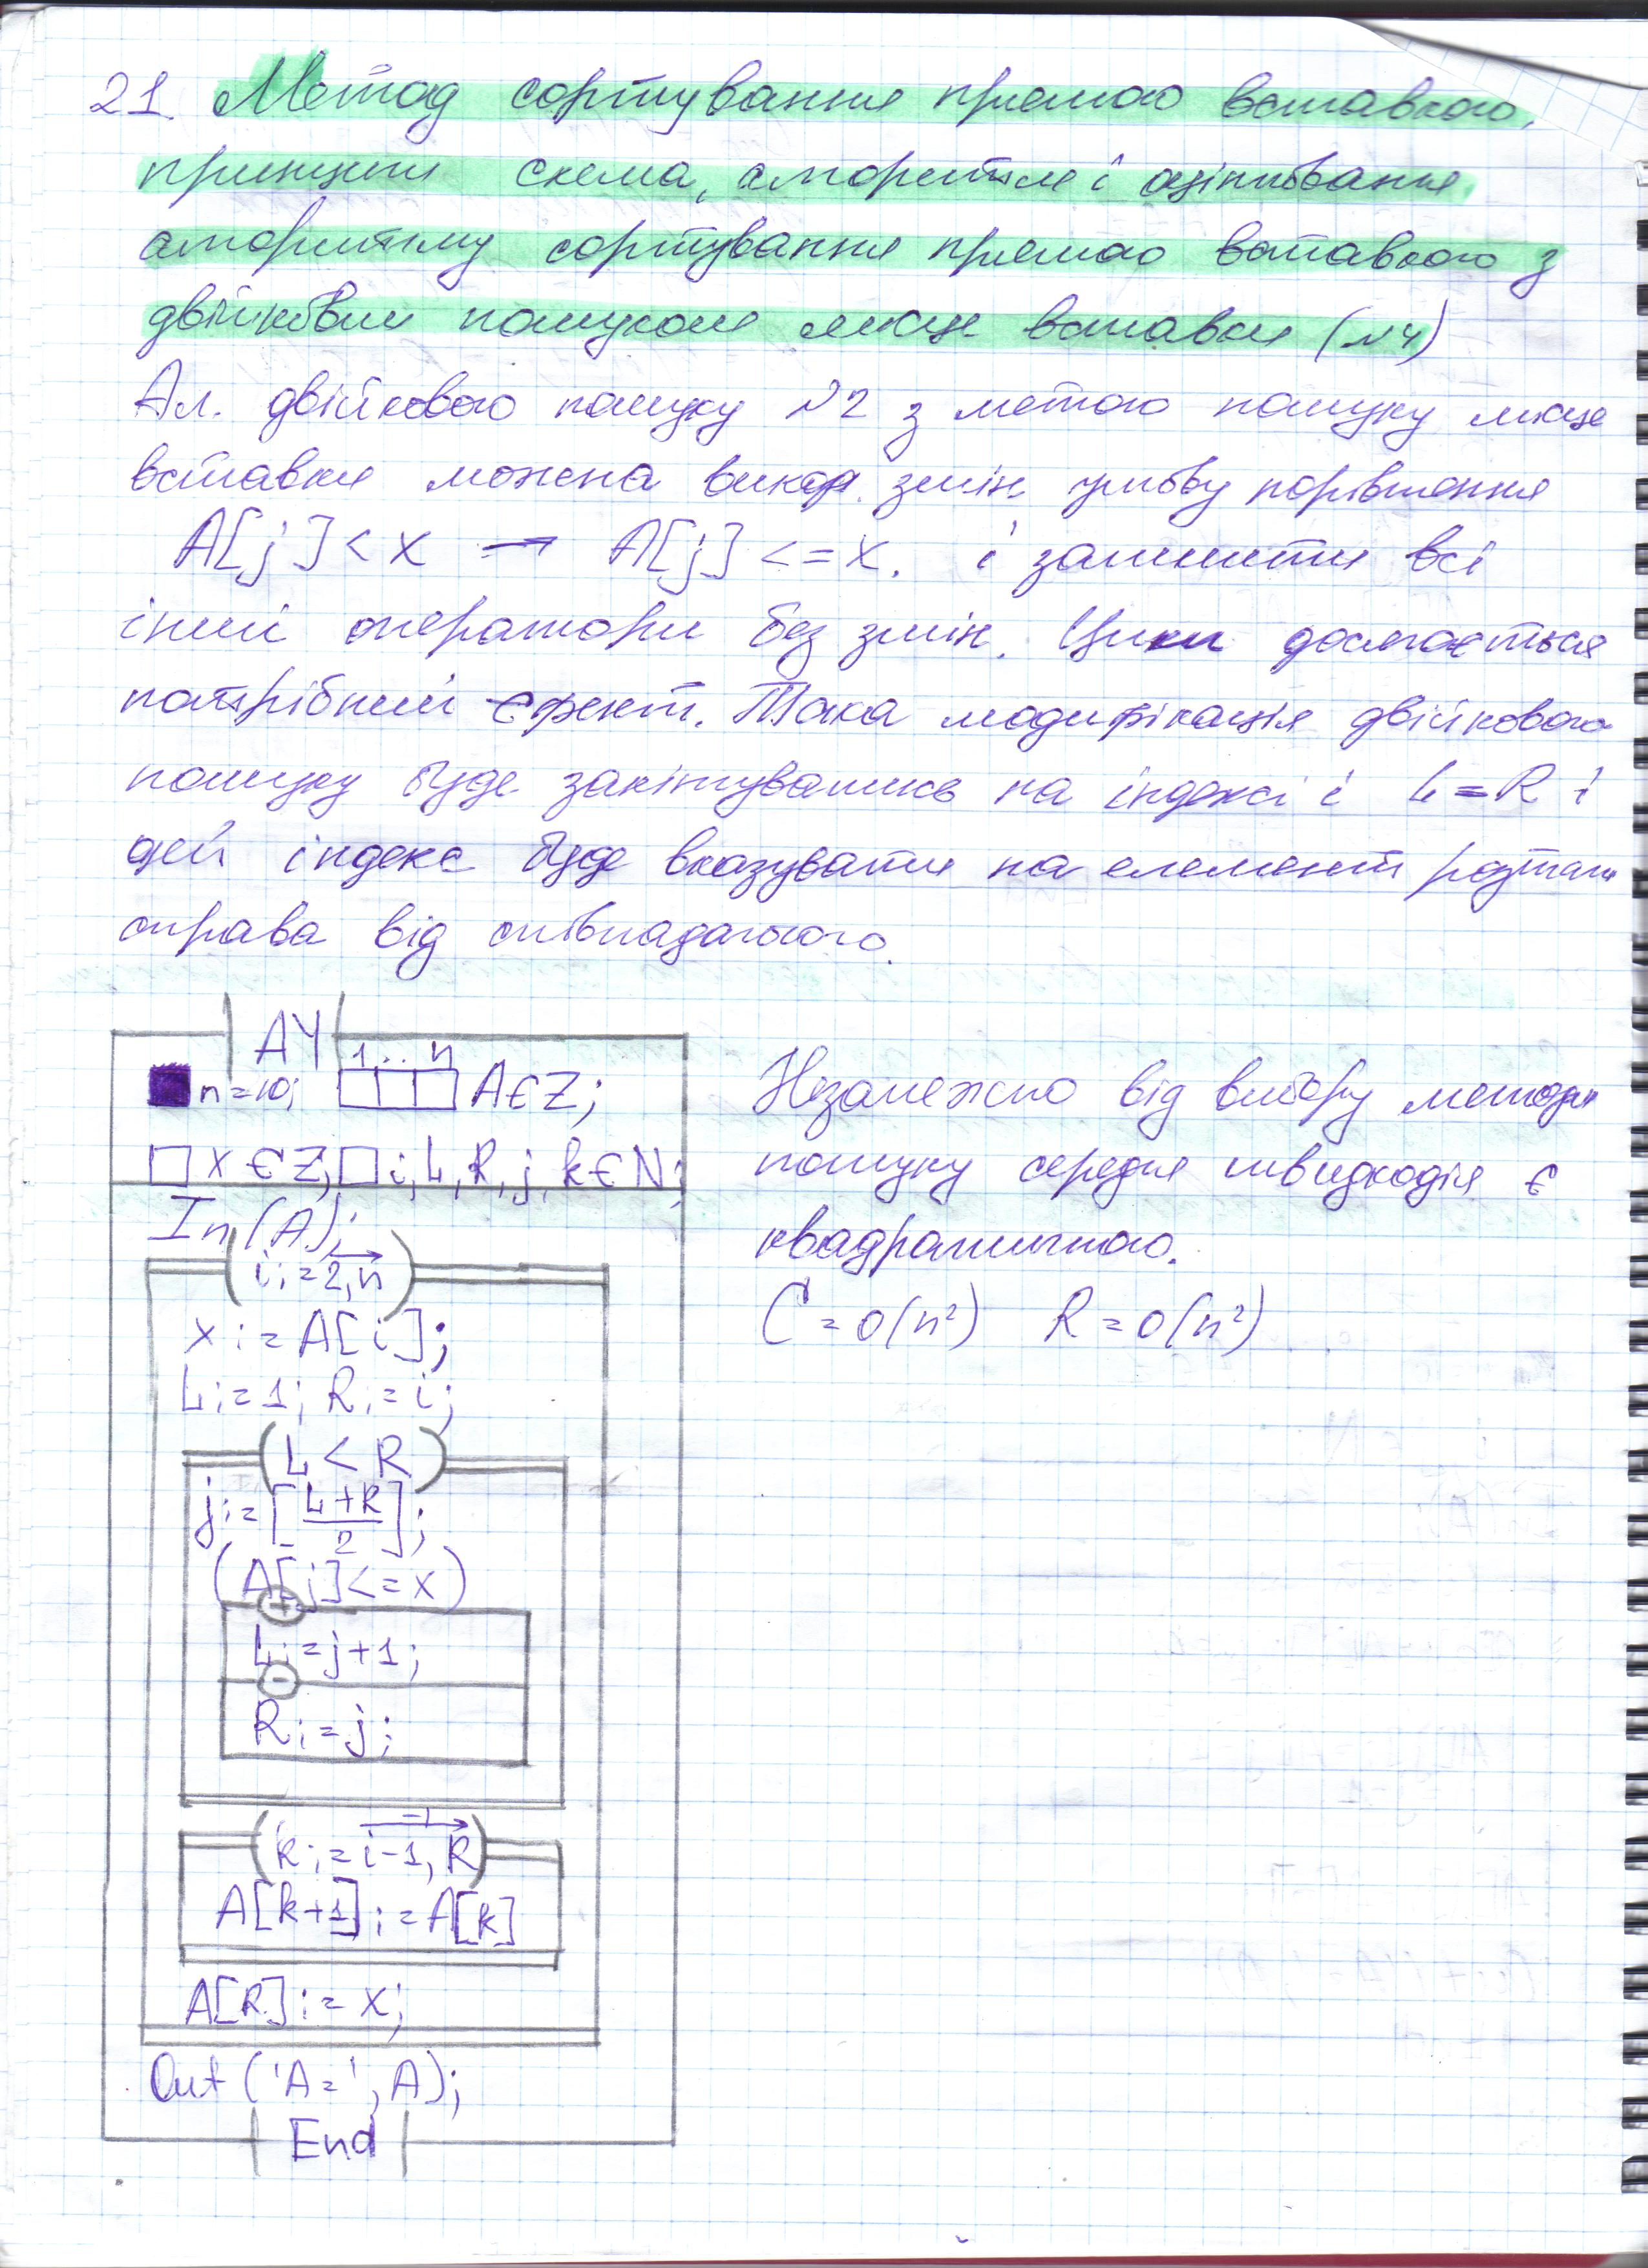 21. Метод сортування прямою вставкою,
принцип схема, алгоритм і оцінювання
алгоритму сортування прямою вставкою з
двійковим пошуком місця вставки (№4)
Ал. двійкового пошуку №2 з метою пошуку місця
вставки можна викор. змін. умову порівняння
A[j] < x → A[j] <= x. і залишити всі
інші оператори без змін. Цим досягається
потрібний єфект. Така модифікація двійкового
пошуку буде закінчуватись на індексі і L=R і
цей індекс буде вказувати на елемент розташ
справа від співпадаючого.
A4
1...n
n=10; A∈Z;
x∈Z, i, L, R, j, k∈N;
In(A);
i:=2,n
x:=A[i];
L:=1; R:=i;
(L < R)
j:=[L+R/2];
(A[j]<=x)
+
L:=j+1;
-
R:=j;
-1
(k:=i-1,R)
A[k+1]:=A[k]
A[R]:=x;
Out('A=',A);
End
Незалежно від вибору методу
пошуку середня швидкодія є
квадратичною.
C=O(n²) R=O(n²)